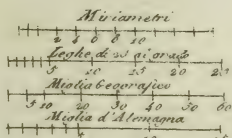 Miriametri
2 4 6 8 10
Leghe di 25 ai grado
5 10 15 20 25
Miglia Geografico
5 10 20 30 40 50 60
Miglia d'Alemagna